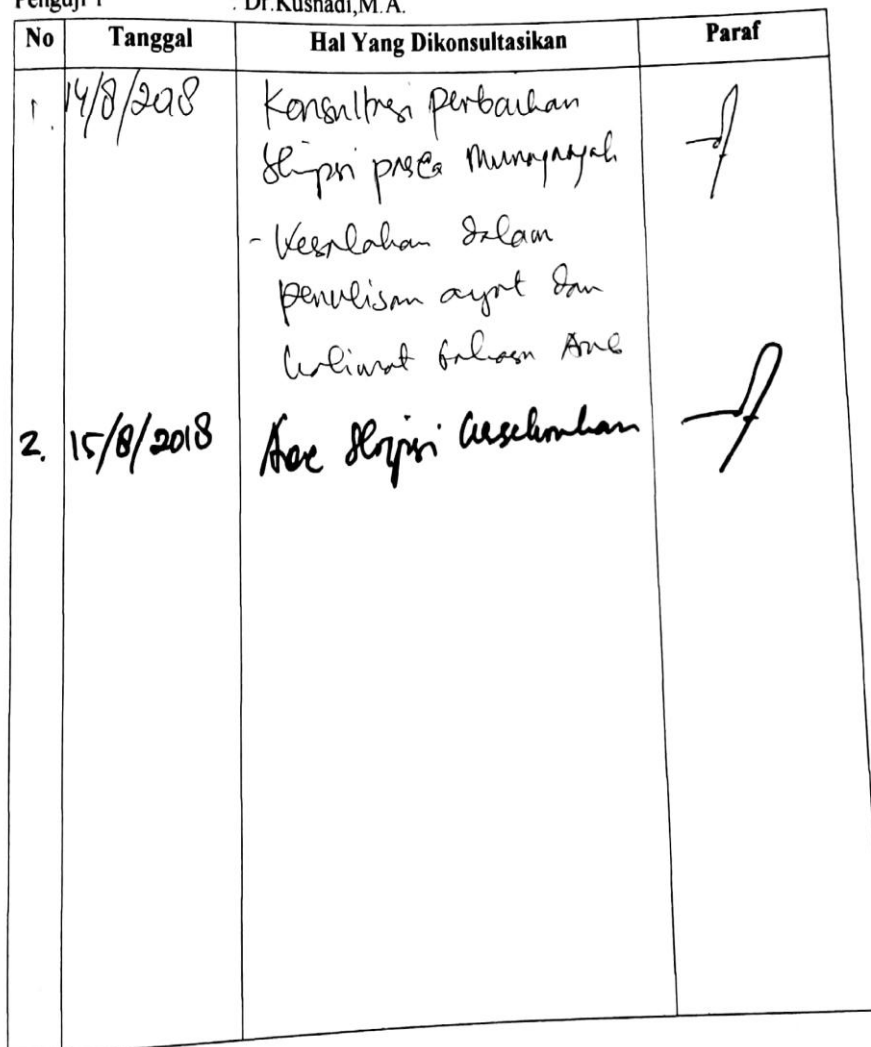 Penguji 1 : Dr.Kusnadi,M.A.
No Tanggal Hal Yang Dikonsultasikan Paraf
1. 14/8/2018 Konsultasi perbaikan
Skripsi pasca Munaqasyah
- Kesalahan dalam
penulisan ayat dan
kalimat bahasa Arab
2. 15/8/2018 Acc Skripsi keseluruhan